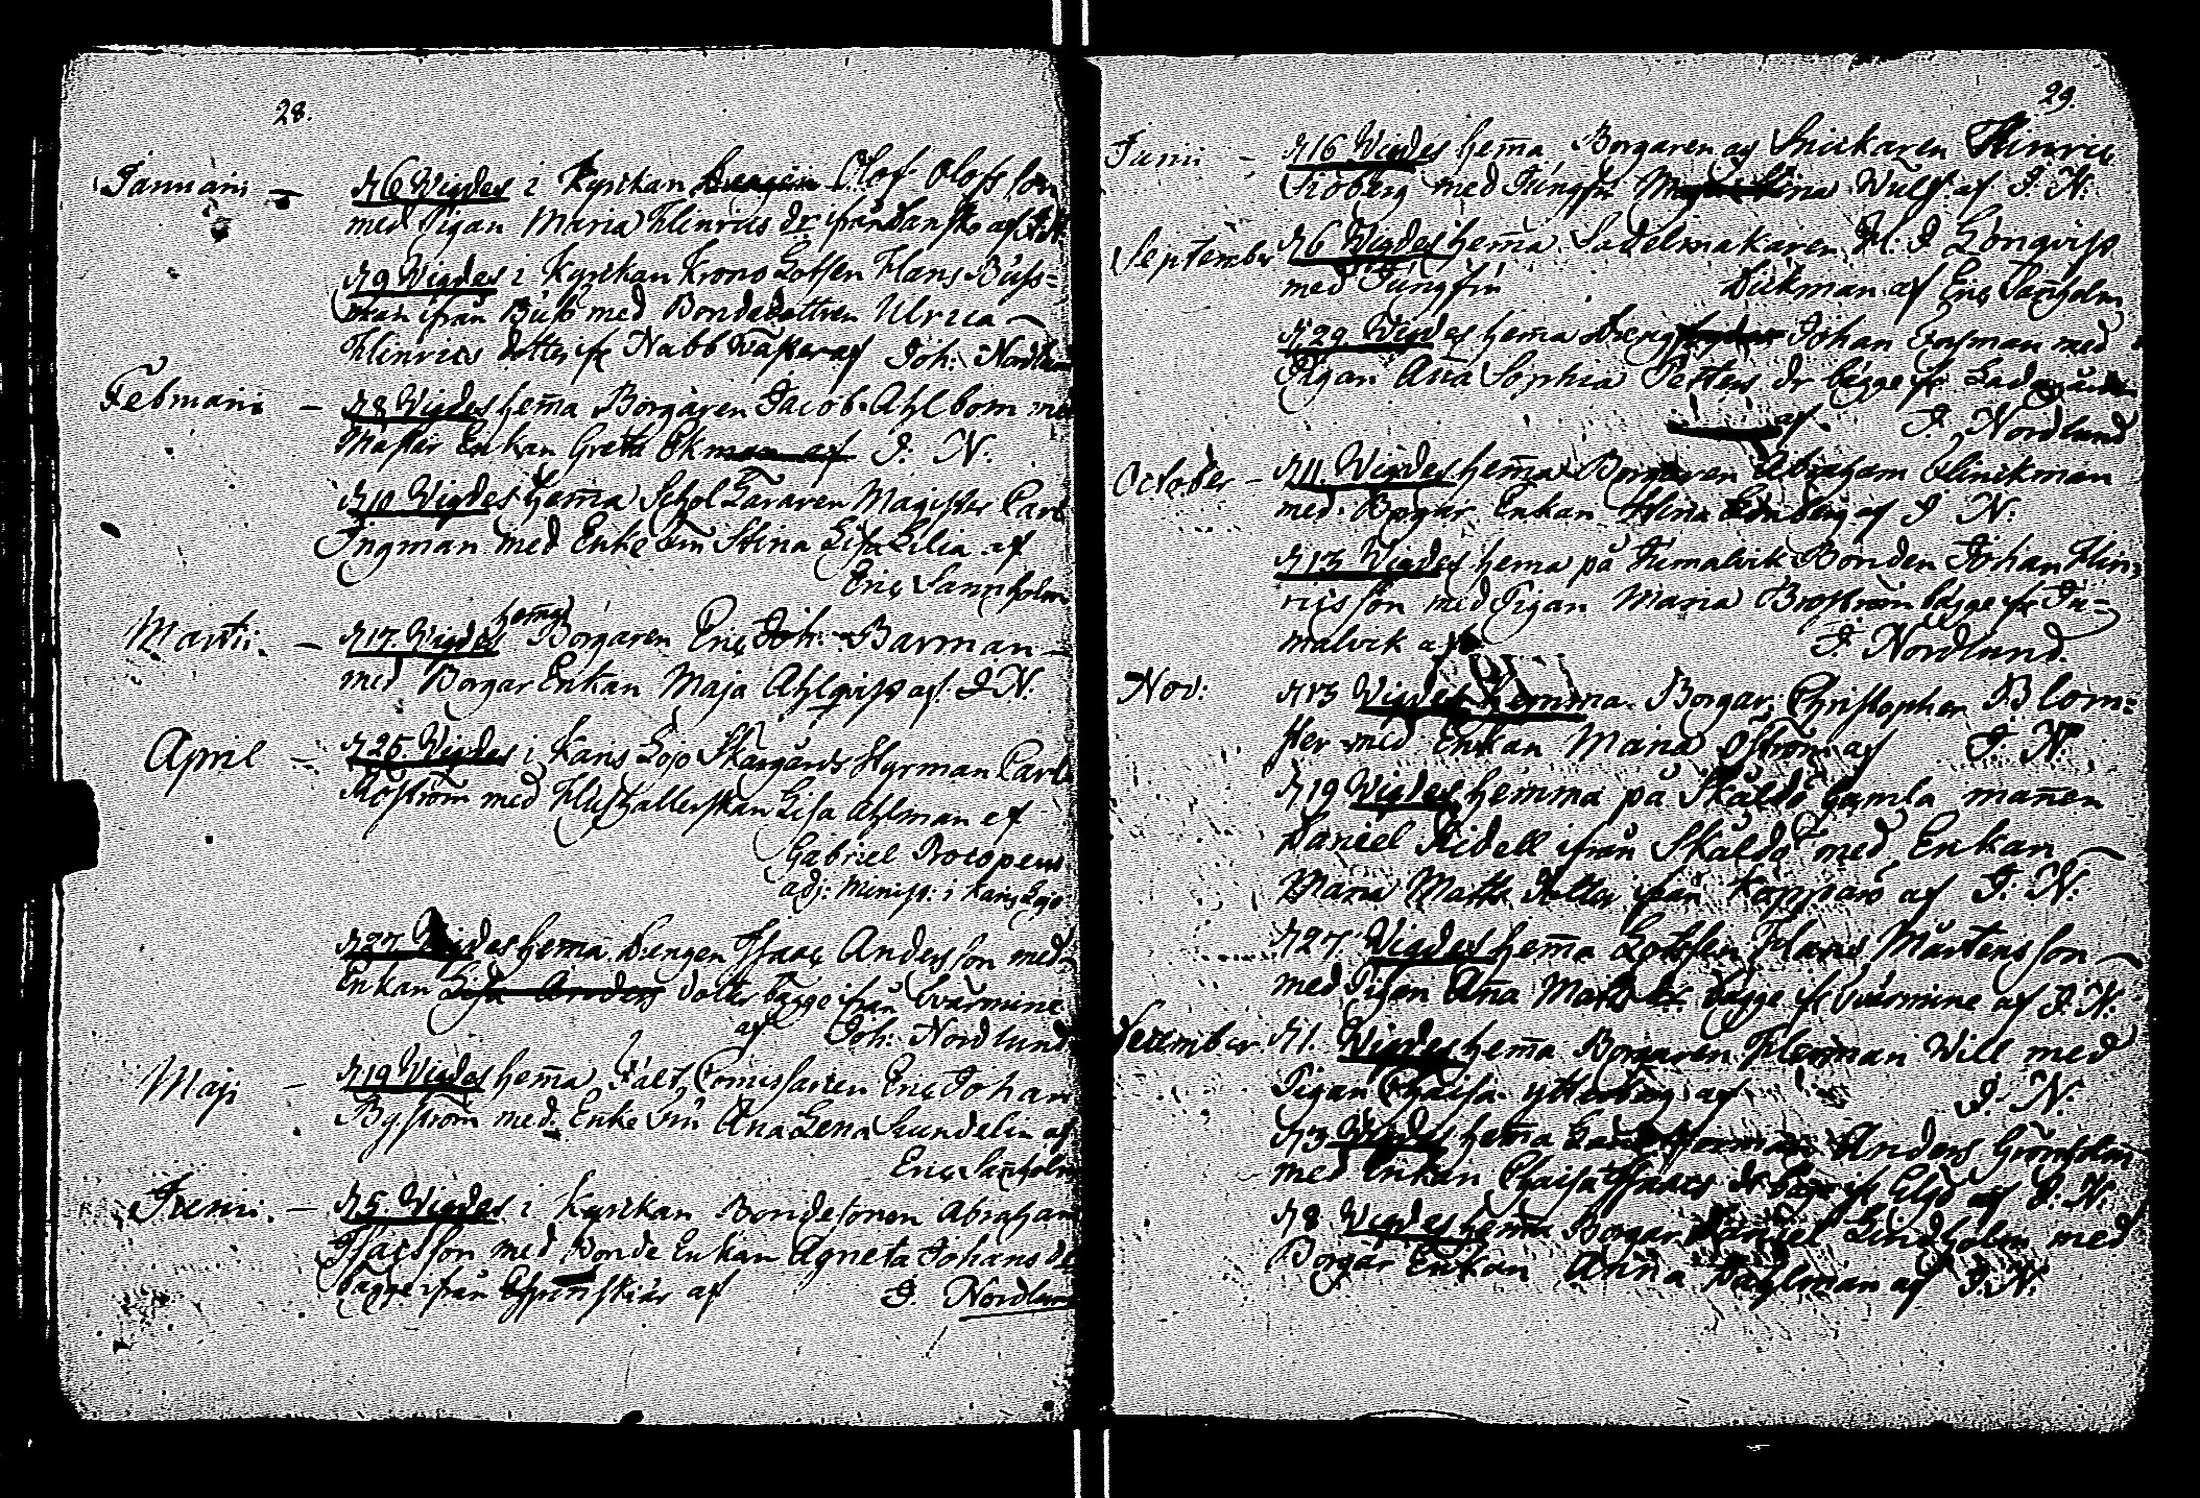 28.
Januarii - d 6 Wigdes i Kyrckan Drengen Olof Olofs son
med Pigan Maria Hinrics dr ifrån Dansko af J. N.
d 9 Wigdes i Kyrckan Krono Lotsen Hans Buss=
man ifrån Buss med Bondedottren Ulrica
Hinrics dotter fr Nabb Wasker af Joh: Nordlund
Februarii - d 8 Wigdes hem̃a Borgaren Jacob Ahlbom med
Mastar Enkan Greta Ekman af J. N.
d 10 Wigdes hem̃a Schol Läraren Magister Carl
Ingman med Enke Fru Stina Lisa Lilia af
Eric Sannholm
Martii. - d 17 Wigdes hem̃a Borgaren Eric Joh: Barman
med Borgar Enkan Maja Ahlqvist af J. N.
April - d 25 Wigdes i Karis Lojo Skärgårds Styrman Carl
Åström med Hushallerskan Lisa Ahlman af
Gabriel Procopeus
adj: Minist: i Karis Lojo
d 27 Wigdes hem̃a Drengen Isaac Anders son med
Enkan Lisa Anders dotter bägge ifrån Tvärmine
af Joh: Nordlund
Maji - d 19 Wigdes hem̃a Fält Com̃issarien Eric Johan
Byström med Enke Fru An̄a Lena Sundelin af
Eric Sanholm
Junii. - d 5 Wigdes i Kyrckan Bondesonen Abraham
Isacsson med Bonde Enkan Agneta Johans dr
bägge ifrån af J. Nordlund
29.
Junii - d 16 Wigdes hem̃a Borgaren och Snickaren Hinric
Sioberg med Jungfr Maja Stina Wulf af J. N.
September d 6 Wigdes hem̃a Sadelmakaren M. J Lönqvist
med Jungfru Dickman af Eric Sanholm
d 29 Wigdes hem̃a Johan Forsman med
Pigan An̄a Sophia Petters dr bägge fr
af J. Nordlund
October - d 11. Wigdes hem̃a Borgaren Abraham Klinckman
med Borgar Enkan af J N.
d 13 Wigdes hem̃a på Tumalvik Bonden Johan Hin=
ricsson med Pigan Maria Broström bägge fr Tu=
malvik af J. Nordlund.
Nov: d 15 Wigdes hemma Borgar: Christopher Blom=
ster med Enkan Maria Öström af J. N.
d 19 Wigdes hemma på Skåldö gamla man̄en
Daniel Sidell ifrån Skåldö med Enkan
Maria Matts dotter ifrån Kopparö af J. N.
d 27. Wigdes hem̃a Lotssen Hans Mårtensson
med Pigan An̄a Matts dr bägge fr Tvärmine af J. N.
December d 1. Wigdes hem̃a Borgaren Herman Will med
Pigan Chaisa Ytterberg af J. N.
d 3 Wigdes hem̃a Anders Grönholm
med Enkan Chaisa Isaacs dr bägge fr Elgö af J. N.
d 8. Wigdes hem̃a Borgar: Daniel Lindholm med
Borgar Enkan Anna Dahlman af J. N.